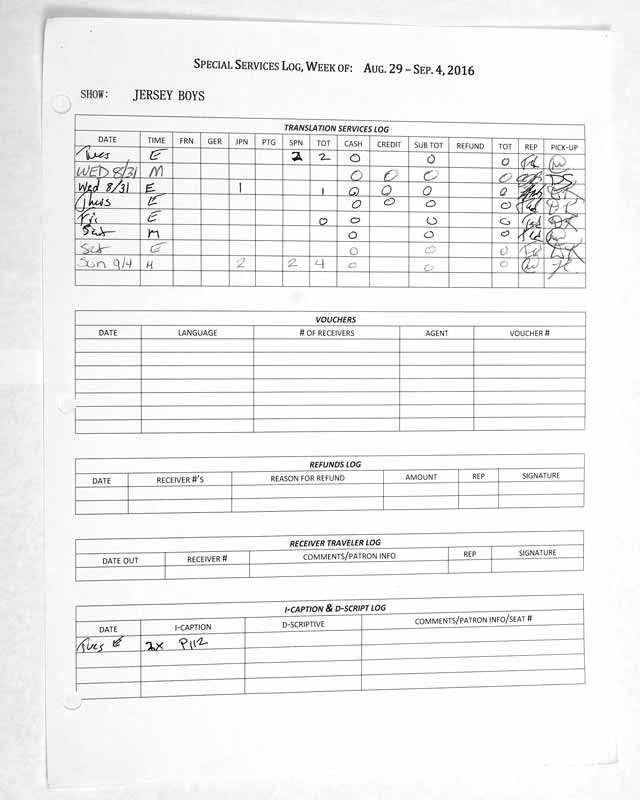 SPECIAL SERVICES LOG, WEEK OF: AUG. 29 – SEP. 4, 2016
SHOW: JERSEY BOYS
TRANSLATION SERVICES LOG
DATE TIME FRN GER JPN PTG SPN TOT CASH CREDIT SUB TOT REFUND TOT REP PICK-UP
Tues E 2 2 0 0 0
WED 8/31 M 0 0 0 0
Wed 8/31 E 1 1 0 0 0 0
Thurs E 0 0 0 0
Fri E 0 0 0 0
Sat M 0 0 0
Sat E 0 0 0
Sun 9/4 M 2 2 4 0 0 0
VOUCHERS
DATE LANGUAGE # OF RECEIVERS AGENT VOUCHER #
REFUNDS LOG
DATE RECEIVER #'S REASON FOR REFUND AMOUNT REP SIGNATURE
RECEIVER TRAVELER LOG
DATE OUT RECEIVER # COMMENTS/PATRON INFO REP SIGNATURE
I-CAPTION & D-SCRIPT LOG
DATE I-CAPTION D-SCRIPTIVE COMMENTS/PATRON INFO/SEAT #
Tues E 2x P112